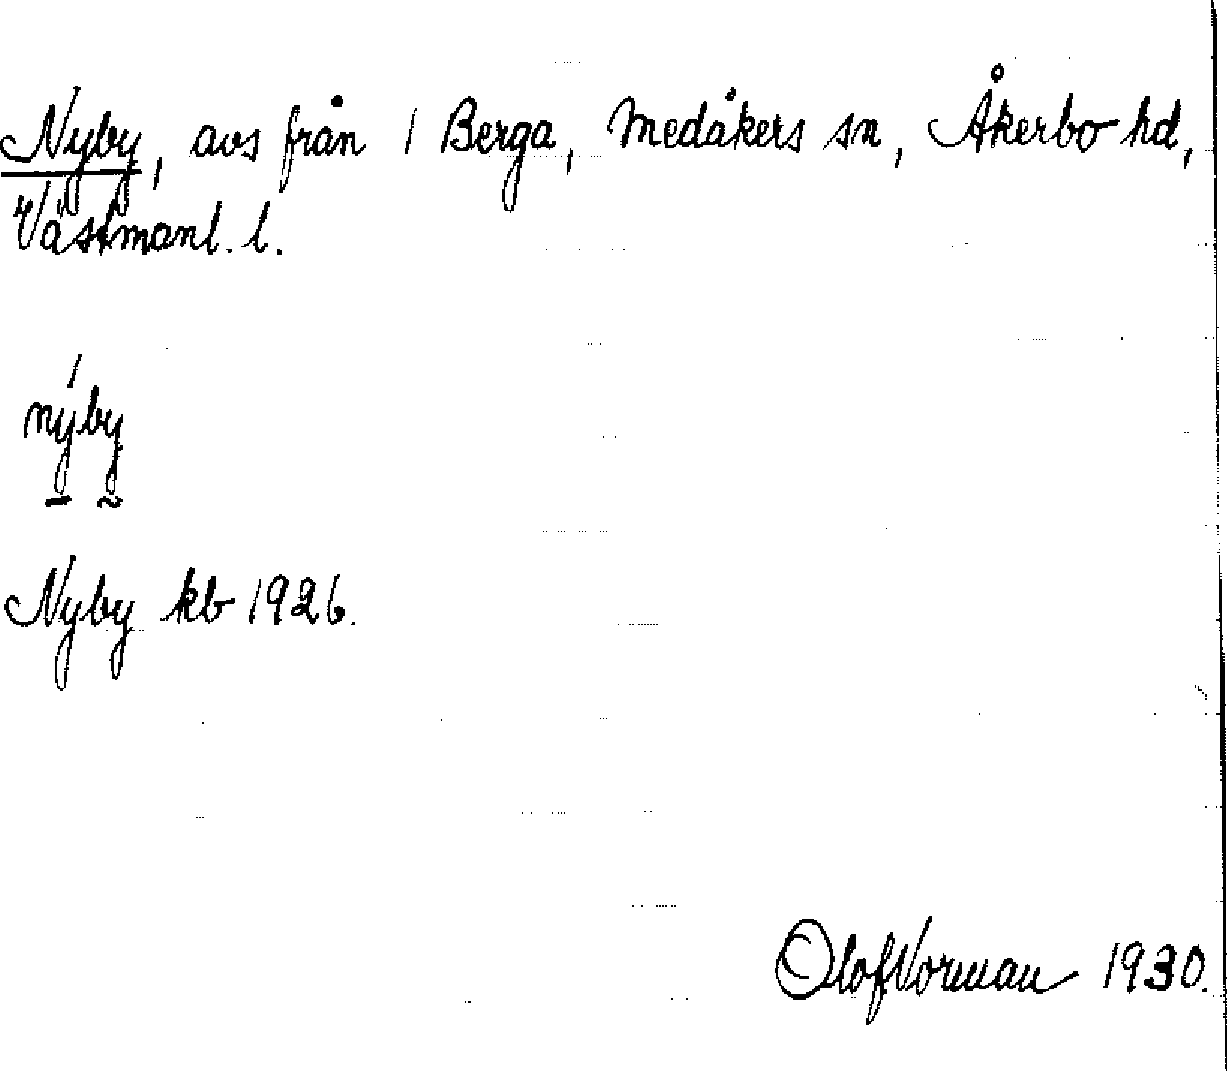 Nyby, avs från 1 Berga, Medåkers sn, Åkerbo hd,
Västmanl. l.
nýby
Nyby kb 1926.
Olof Vorman 1930.